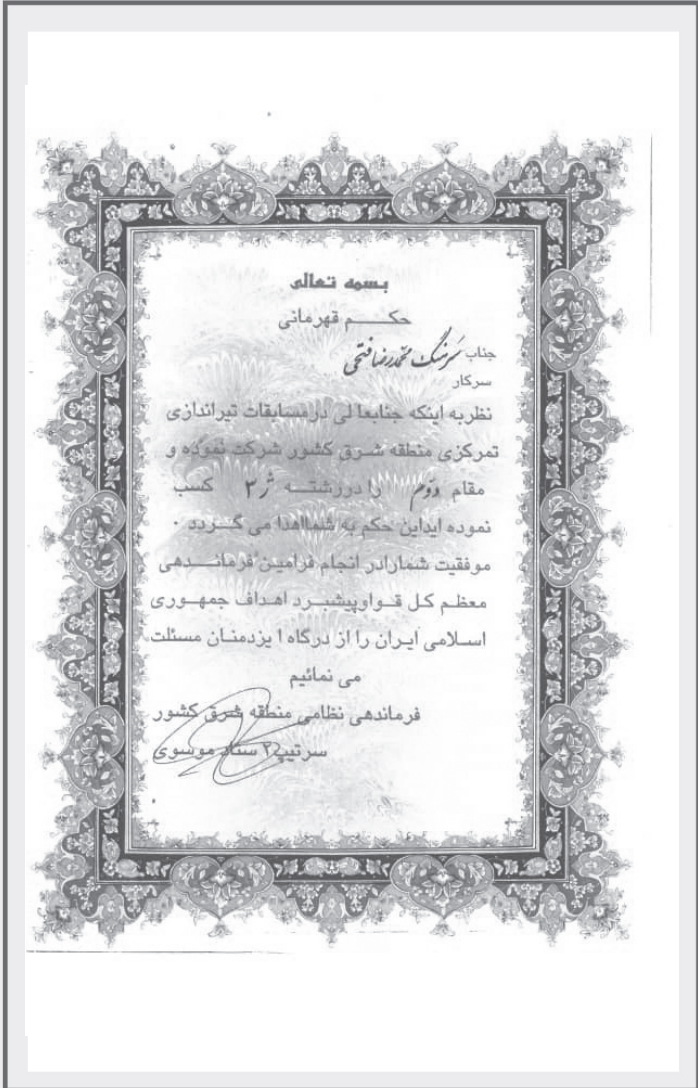 بسمه تعالی
حکم قهرمانی
جناب سرهنگ محمدرضا فتحی
سرکار
نظربه اینکه جنابعالی درمسابقات تیراندازی
تمرکزی منطقه شرق کشور شرکت نموده و
مقام دوم را دررشته ژ۳ کسب
نموده ایداین حکم به شمااهدا می گردد ۰
موفقیت شمارادر انجام فرامین فرماندهی
معظم کل قواوپیشبرد اهداف جمهوری
اسلامی ایران را از درگاه ایزدمنان مسئلت
می نمائیم
فرماندهی نظامی منطقه شرق کشور
سرتیپ۲ ستاد موسوی